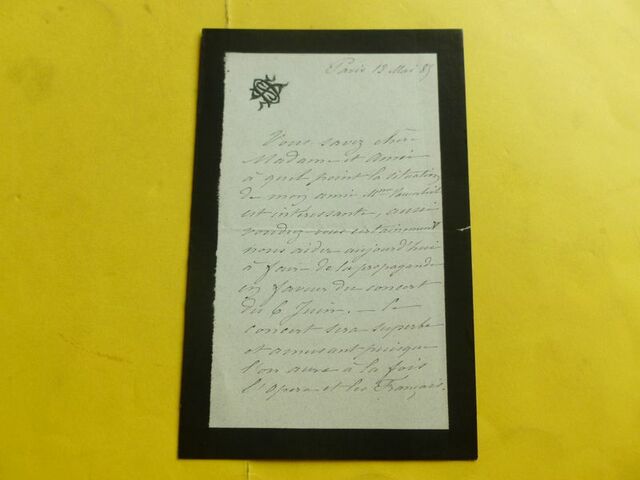 Paris 13 Mai 85
Vous savez chère
Madame et amie
à quel point la situation
de mon amie Mme
est intéressante, aussi
voudrez-vous certainement
nous aider aujourd'hui
à faire de la propagande
en faveur du concert
du 6 Juin. — Le
concert sera superbe
et amusant puisque
l'on aura à la fois
l'Opera et les Français.